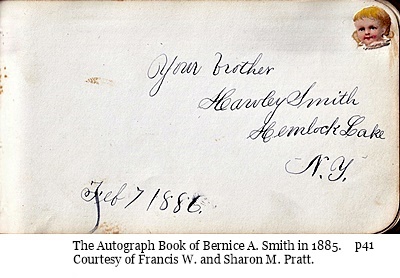 Your brother
Hawley Smith
Hemlock Lake
N.Y.
Feb 7 1886.
The Autograph Book of Bernice A. Smith in 1885. p41
Courtesy of Francis W. and Sharon M. Pratt.